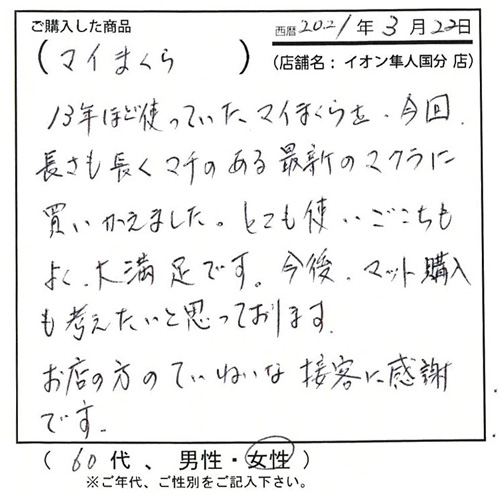 ご購入した商品
西暦 2021年 3月 22日
(マイまくら)
(店舗名：イオン隼人国分 店)
13年ほど使っていた、マイまくらを、今回、
長さも長くマチのある最新のマクラに
買いかえました。とても使いごこちも
よく、大満足です。今後、マット購入
も考えたいと思っております。
お店の方のていねいな接客に感謝
です。
(60代、男性・女性)
※ご年代、ご性別をご記入下さい。